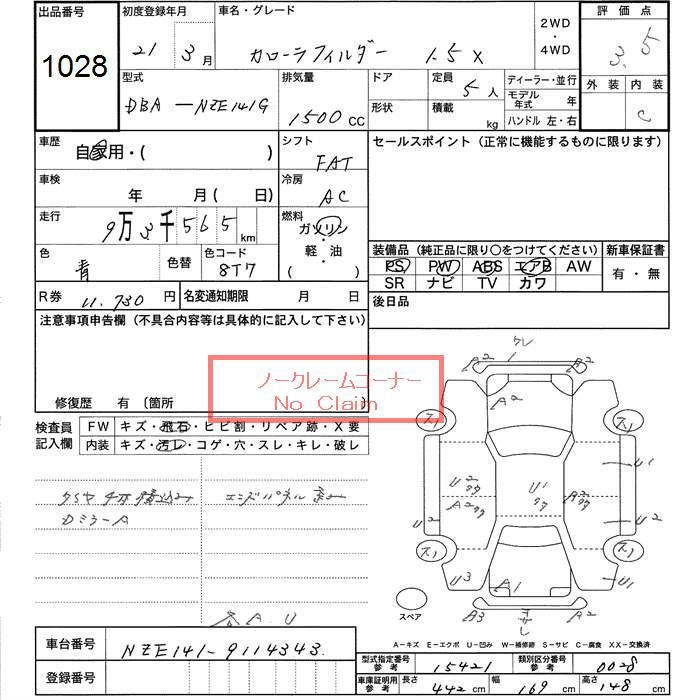 出品番号 初度登録年月 車名・グレード 2WD・4WD 評価点
1028 21 3月 カローラフィルダー 1.5 X 3.5
型式 排気量 ドア 定員 ディーラー・並行 外装 内装
DBA-NZE141G 1500 CC 形状 5人 モデル年式 年 C
積載 kg ハンドル 左・右
車歴 自家用・( ) シフト FAT セールスポイント(正常に機能するものに限ります)
車検 年 月( 日) 冷房 AC
走行 9万3千565km 燃料 ガソリン 軽・油 ( )
色 青 色替 色コード 8T7
装備品(純正品に限り〇をつけてください) 新車保証書
PS PW ABS エアB AW 有・無
SR ナビ TV カワ
R券 11,730円 名変通知期限 月 日 後日品
注意事項申告欄(不具合内容等は具体的に記入して下さい)
ノークレームコーナー
No Claim
修復歴 有 〔箇所 〕
検査員記入欄 FW キズ・飛石・ヒビ割・リペア跡・X要
内装 キズ・汚レ・コゲ・穴・スレ・キレ・破レ
エンドパネル
DミラーA
A.U
A2 A2
A2
ス1 ス1
U2 A2 U1 A2 U1
U2 U2
ス1 ス1
U3 A1 U1
スペア A3 A2
A-キズ E-エクボ U-凹み W-補修跡 S-サビ C-腐食 XX-交換済
車台番号 NZE141-9114343
型式指定番号参考 15421 類別区分番号参考 0028
登録番号
車庫証明用参考 長さ 442 cm 幅 169 cm 高さ 148 cm